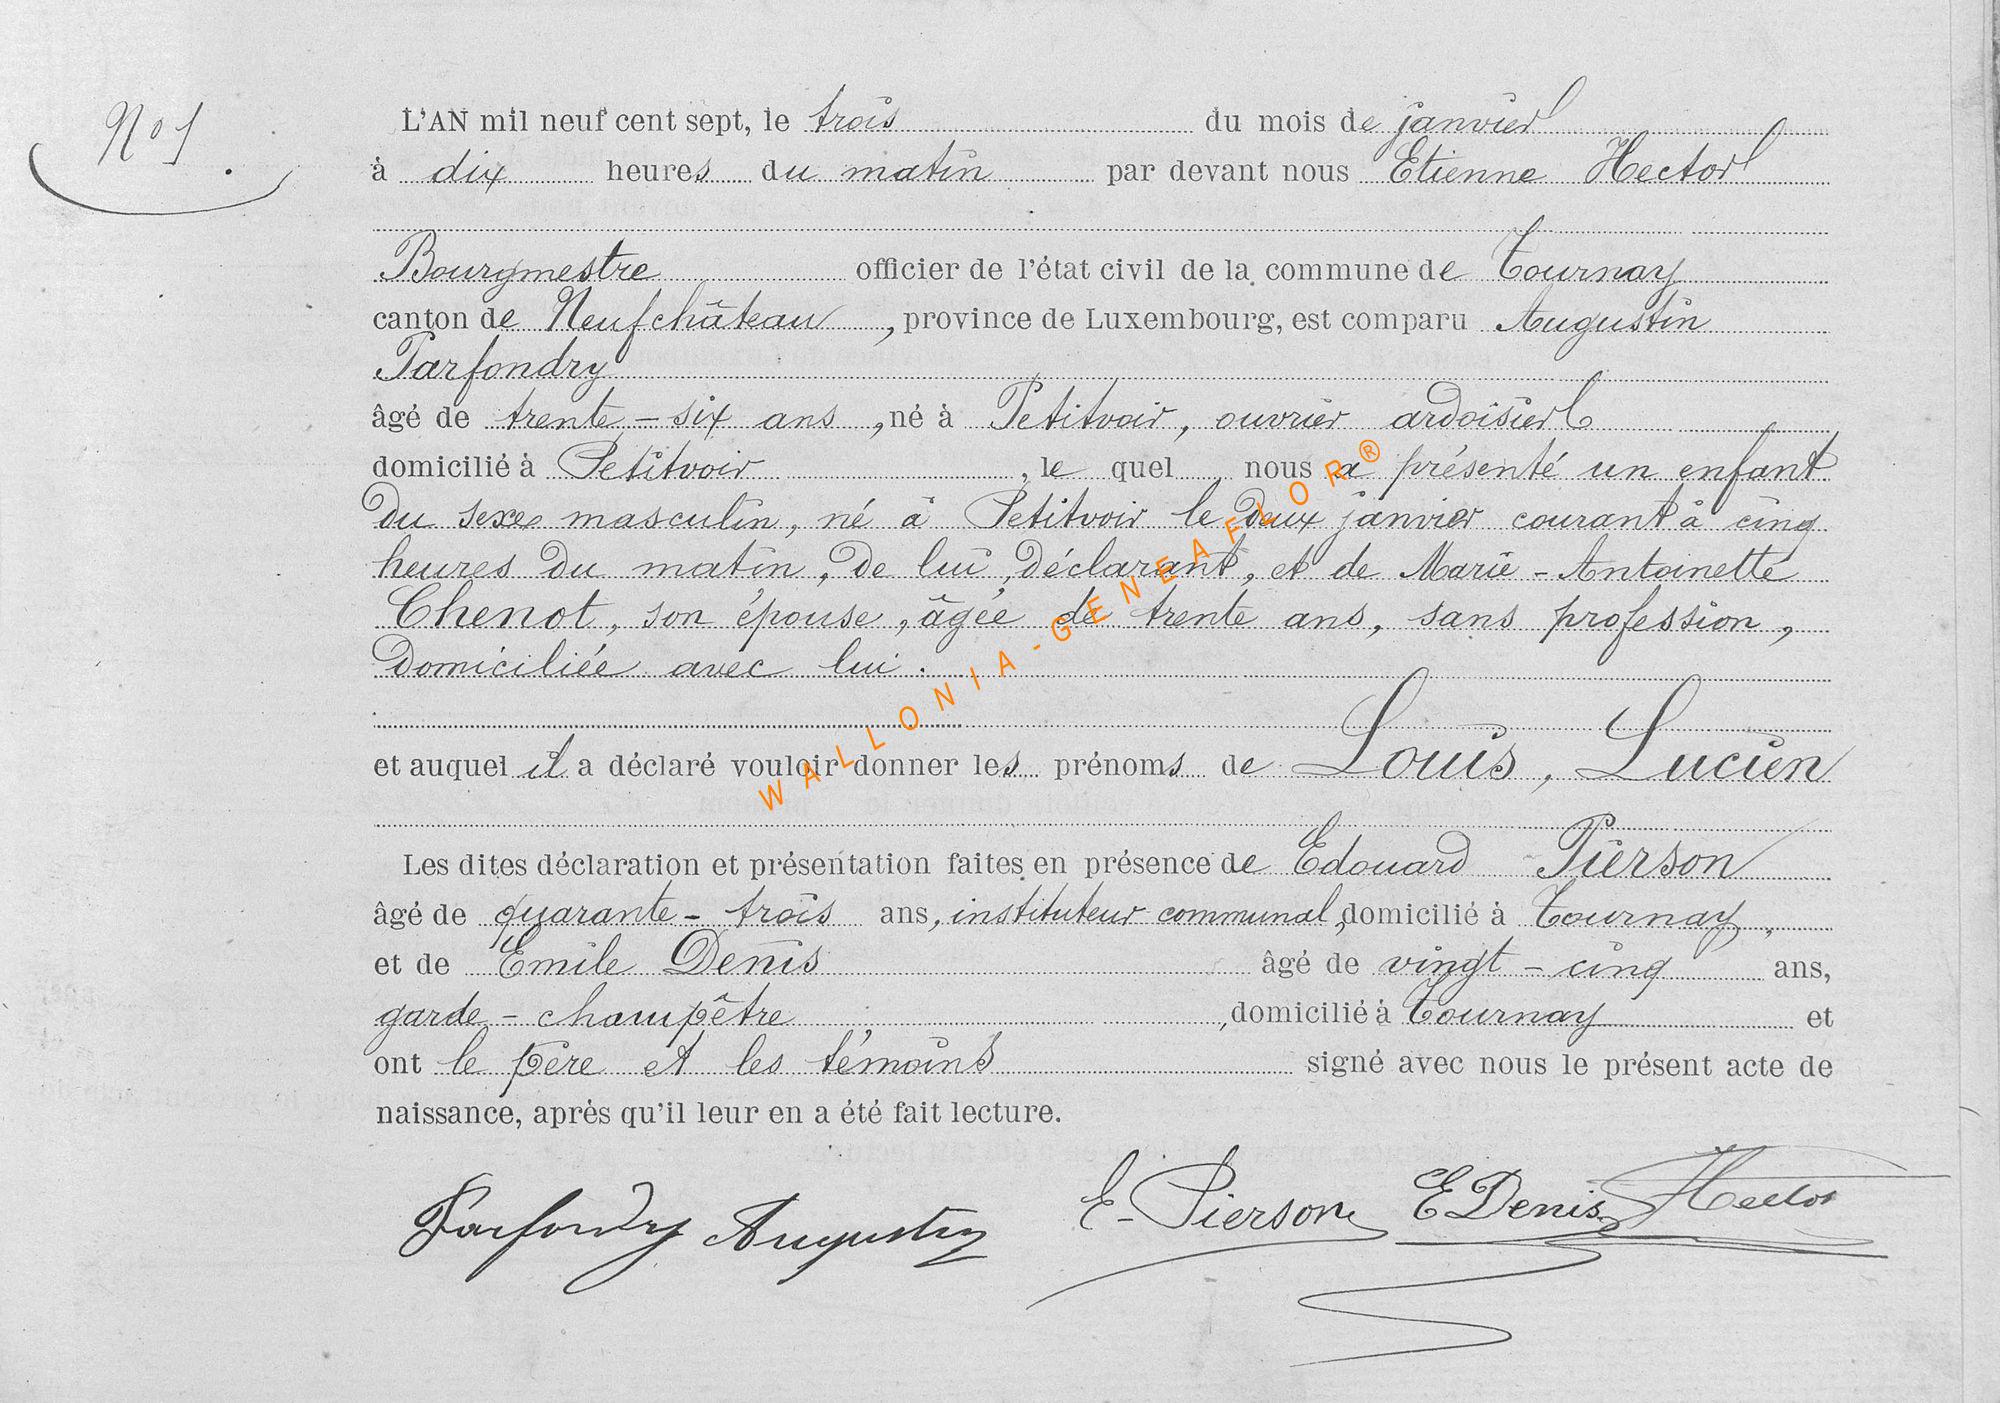 No 1
L'AN mil neuf cent sept, le trois du mois de janvier
à dix heures du matin par devant nous Etienne Hector
Bourgmestre officier de l'état civil de la commune de Tournay
canton de Neufchâteau, province de Luxembourg, est comparu Augustin
Parfondry
âgé de trente-six ans, né à Petitvoir, ouvrier ardoisier
domicilié à Petitvoir, le quel nous a présenté un enfant
du sexe masculin, né à Petitvoir le deux janvier courant à cinq
heures du matin, de lui, déclarant, et de Marie-Antoinette
Chenot, son épouse, âgée de trente ans, sans profession,
domiciliée avec lui.
et auquel il a déclaré vouloir donner les prénoms de Louis, Lucien
Les dites déclaration et présentation faites en présence de Edouard Pierson
âgé de quarante-trois ans, instituteur communal, domicilié à Tournay,
et de Emile Denis âgé de vingt-cinq ans,
garde-champêtre, domicilié à Tournay et
ont le père et les témoins signé avec nous le présent acte de
naissance, après qu'il leur en a été fait lecture.
Parfondry Augustin E. Pierson E Denis Hector
WALLONIA-GENEAFLOR®